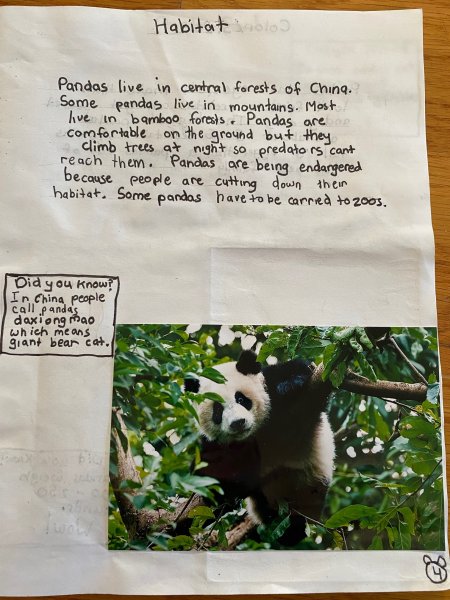 Habitat
Pandas live in central forests of China.
Some pandas live in mountains. Most
live in bamboo forests. Pandas are
comfortable on the ground but they
climb trees at night so predators cant
reach them. Pandas are being endangered
because people are cutting down their
habitat. Some pandas have to be carried to zoos.
Did you know?
In China people
call pandas
daxiongmao
which means
giant bear cat.
4